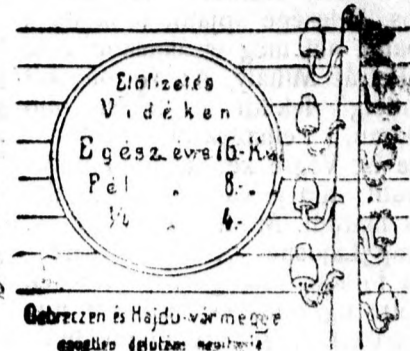 Előfizetés
Vidéken
Egész évre 16.- K.
Fél " 8.- "
¼ " 4.-
Debreczen és Hajdu-vármegye
egyetlen délutáni